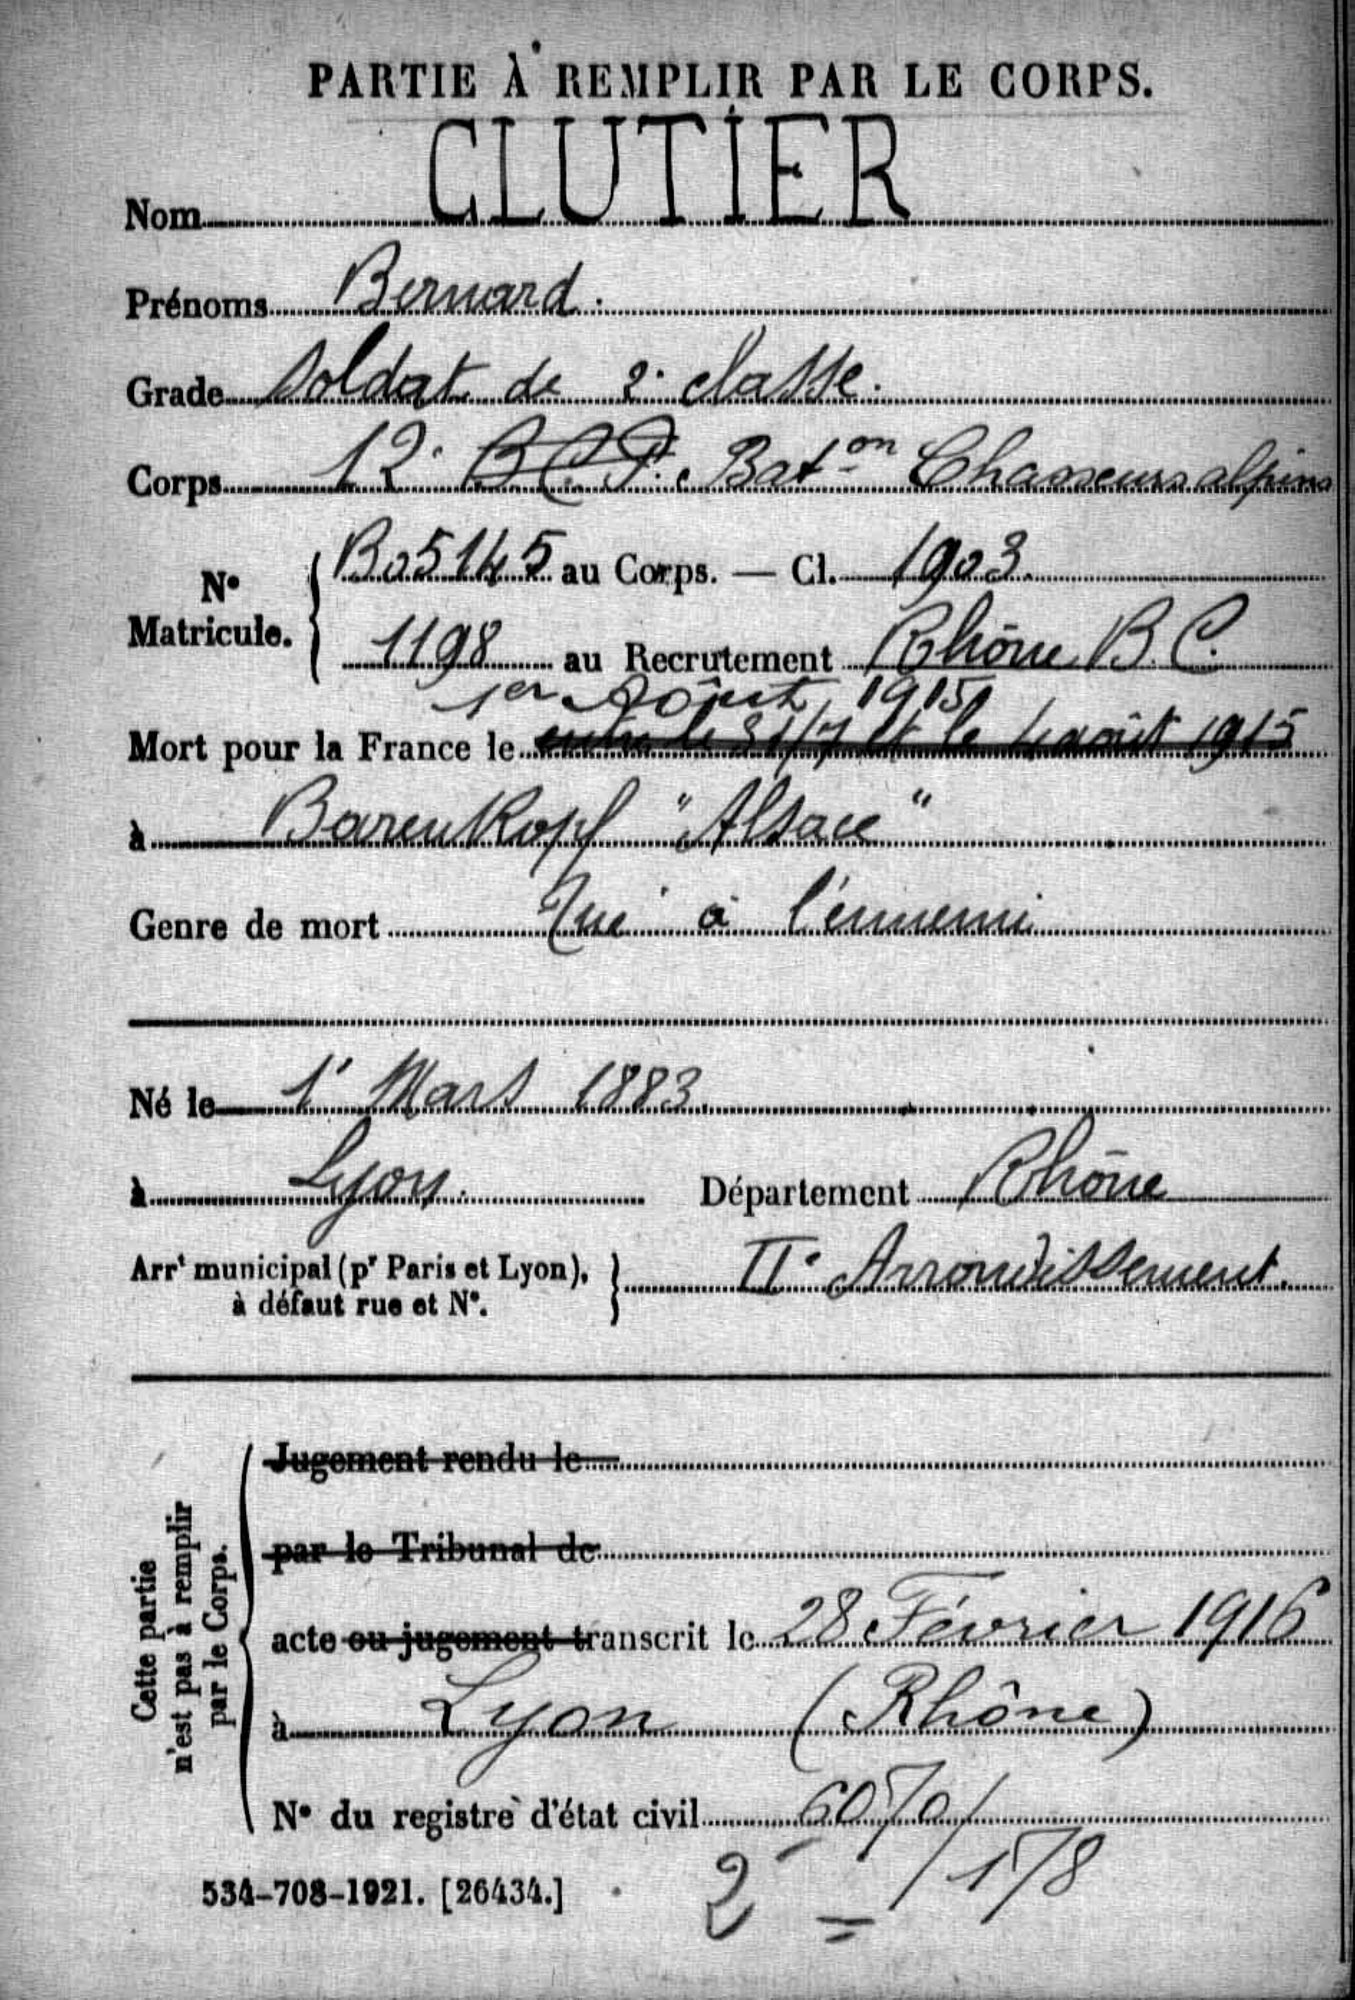 PARTIE À REMPLIR PAR LE CORPS.
Nom CLUTIER
Prénoms Bernard.
Grade Soldat de 2e classe.
Corps 12e B.C.P. Bat.on Chasseurs alpins
N° Matricule. { Bo5145 au Corps. — Cl. 1903.
1198 au Recrutement Rhône B.C.
1er Août 1915
Mort pour la France le entre le 31/7 et le 4 août 1915
à Barenkopf "Alsace"
Genre de mort Tué à l'ennemi
Né le 1er Mars 1883.
à Lyon. Département Rhône
Arrt municipal (pr Paris et Lyon), à défaut rue et N°. } IIe Arrondissement.
Cette partie n'est pas à remplir par le Corps.
Jugement rendu le
par le Tribunal de
acte ou jugement transcrit le 28 Février 1916
à Lyon (Rhône)
N° du registre d'état civil 6070/
534-708-1921. [26434.]
2 = /178